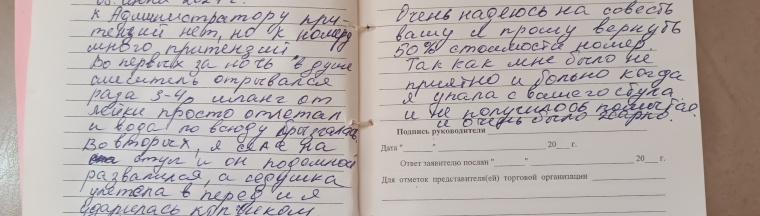 к Администратору при-
тензий нет, но к номеру
много притензий
Во первых за ночь в душе
смеситель отрывался
раза 3-4, шланг от
лейки просто отлетал
и вода по всюду брызгала.
Во вторых, я села на
стул и он подомной
развалился, а седушка
улетела в перед и я
ударилась копчиком
Очень надеюсь на совесть
вашу и прошу вернуть
50% стоимости номер.
Так как мне было не
приятно и больно когда
я упала с вашего стула
и не получилось помыться
и очень было жарко.
Подпись руководителя
Дата "___" ___ 20__ г.
Ответ заявителю послан "___" ___ 20__ г.
Для отметок представителя(ей) торговой организации